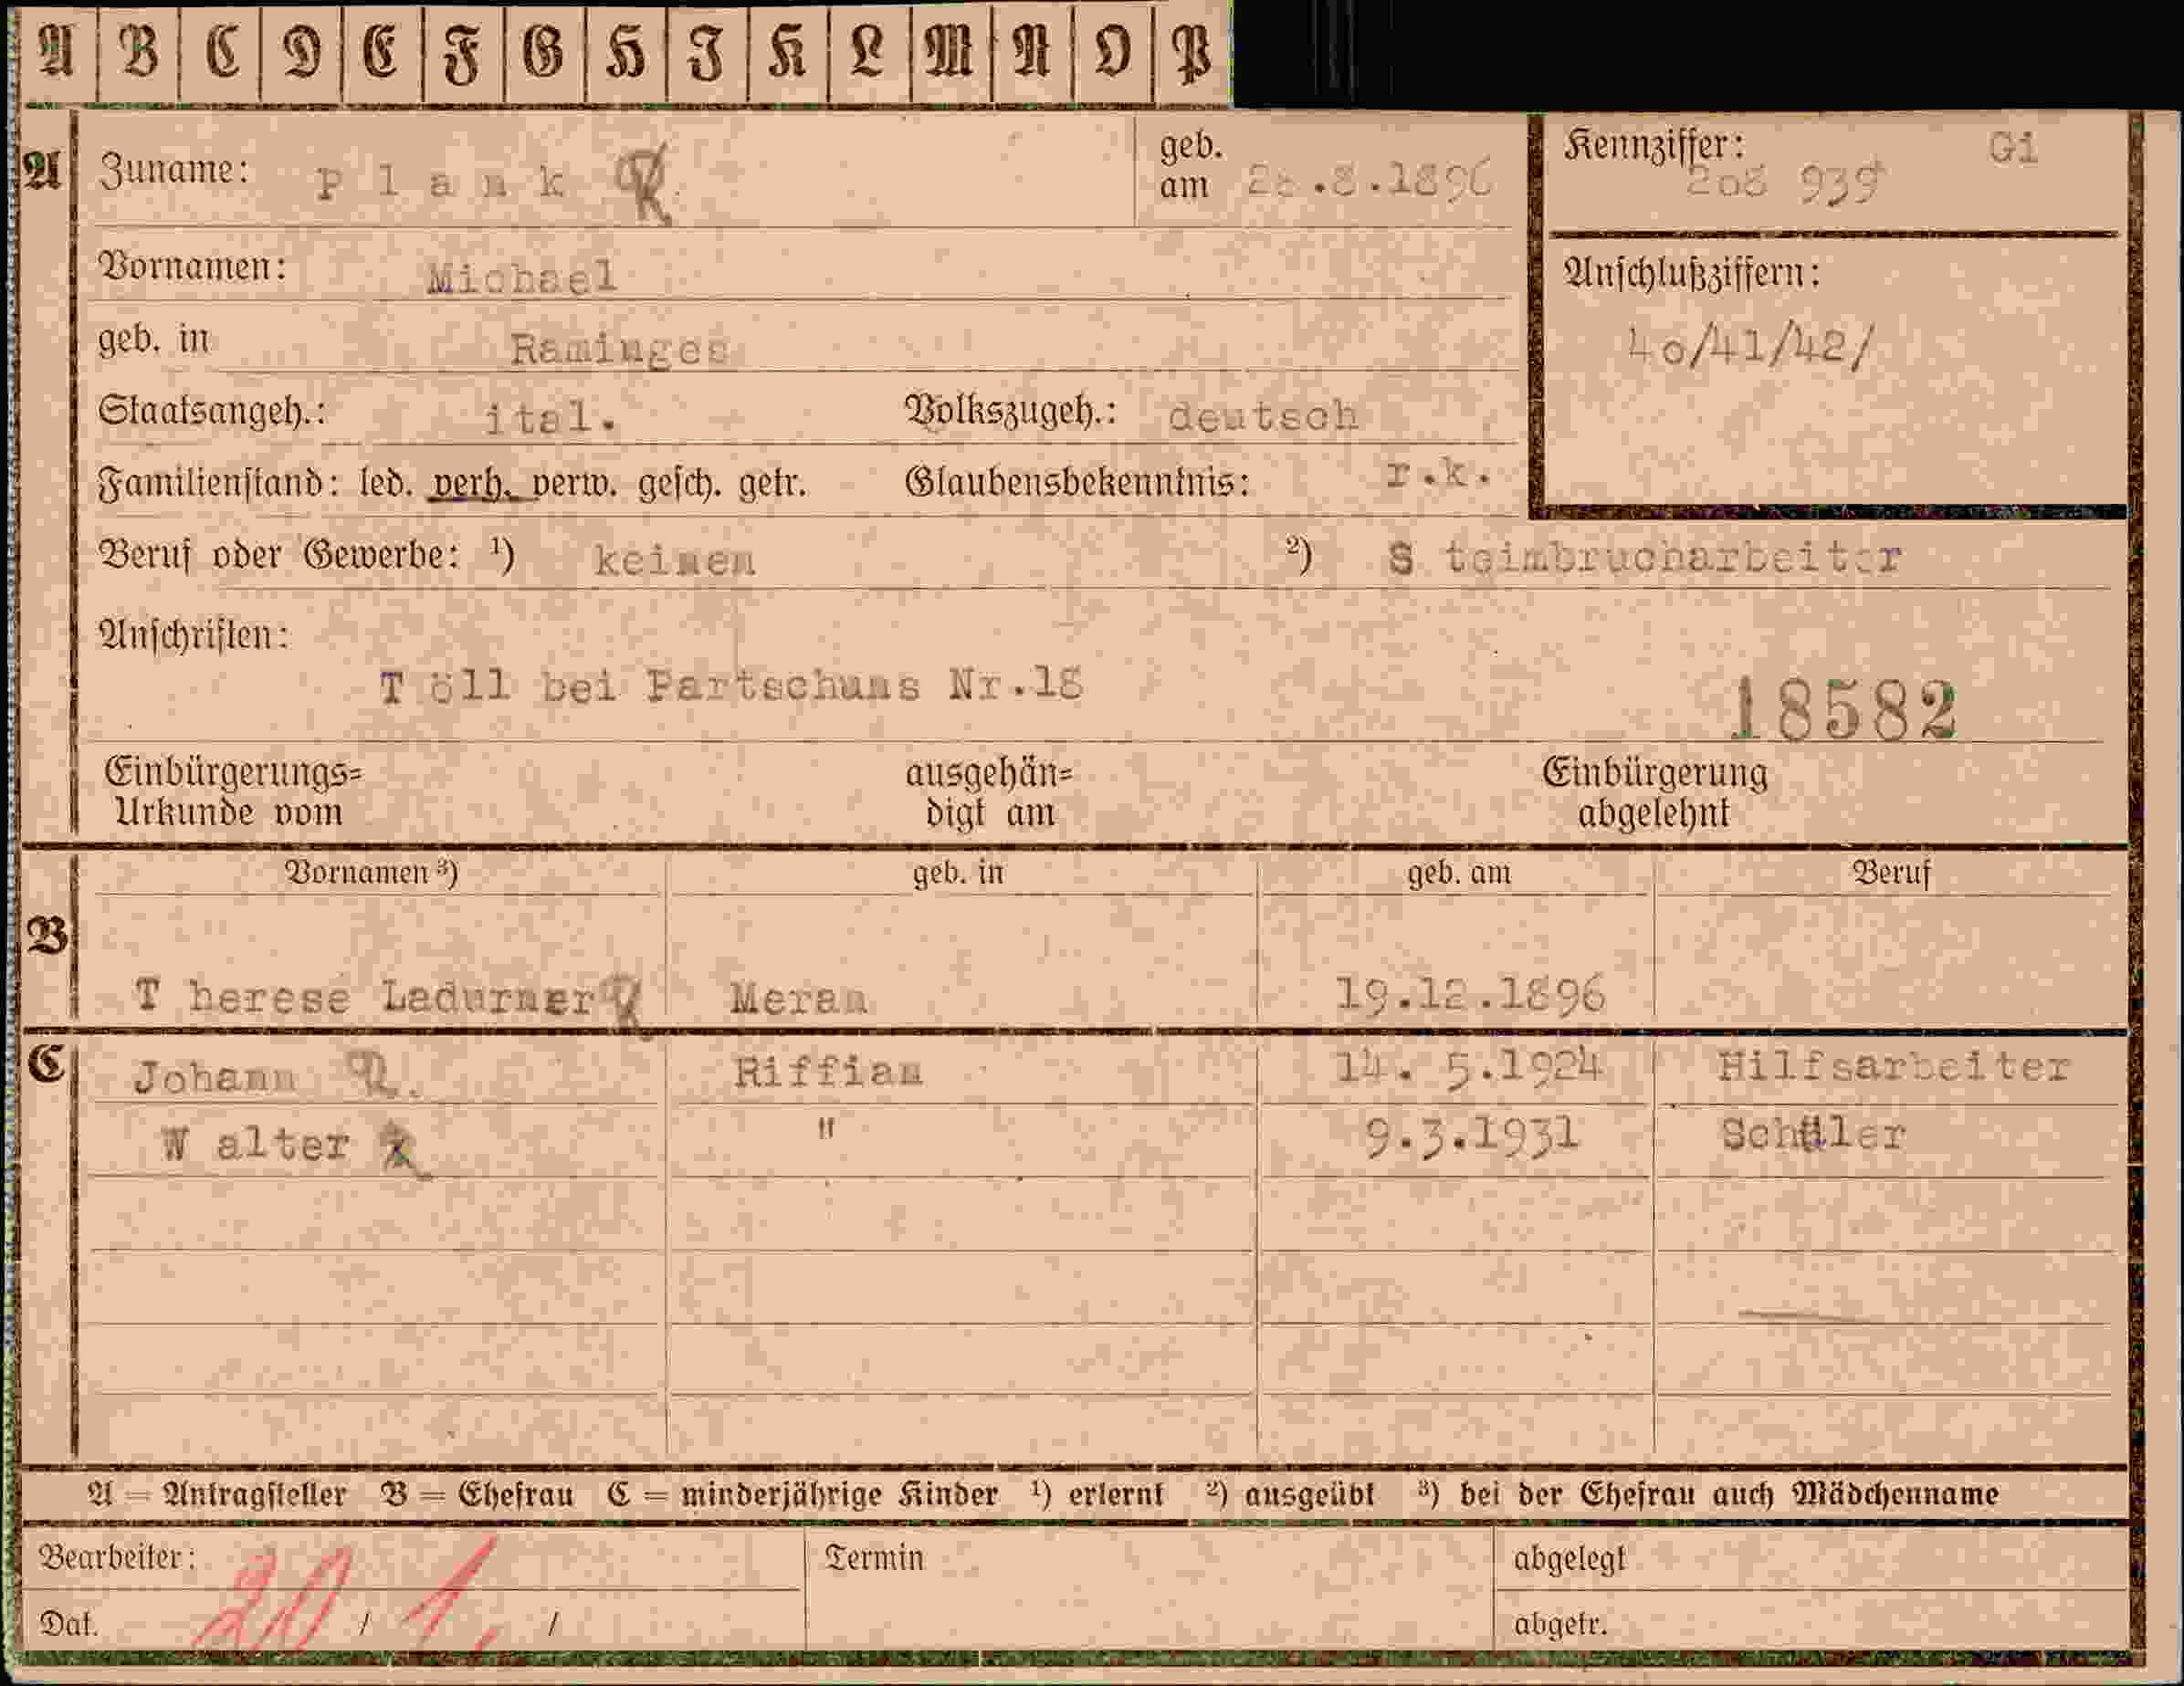 A B C D E F G H I K L M N O P
A Zuname: P l a n k R. geb. am 28.8.1896 Kennziffer: 208 939 Gi
Vornamen: Michael
Anschlußziffern:
geb. in
40/41/42/
Staatsangeh.: ital. Volkszugeh.: deutsch
Familienstand: led. verh. verw. gesch. getr. Glaubensbekenntnis: r.k.
Beruf oder Gewerbe: ¹) keinen ²) S teimbrucharbeiter
Anschriften:
T öll bei Partschuns Nr.18
18582
Einbürgerungs= Urkunde vom ausgehän= digt am Einbürgerung abgelehnt
Vornamen ³) geb. in geb. am Beruf
B
T herese Ladurner R Meran 19.12.1896
C Johann R. Riffian 14. 5.1924 Hilfsarbeiter
W alter " 9.3.1931 Schüler
A = Antragsteller B = Ehefrau C = minderjährige Kinder ¹) erlernt ²) ausgeübt ³) bei der Ehefrau auch Mädchenname
Bearbeiter: Termin abgelegt
Dat. 20 / 1. / abgetr.